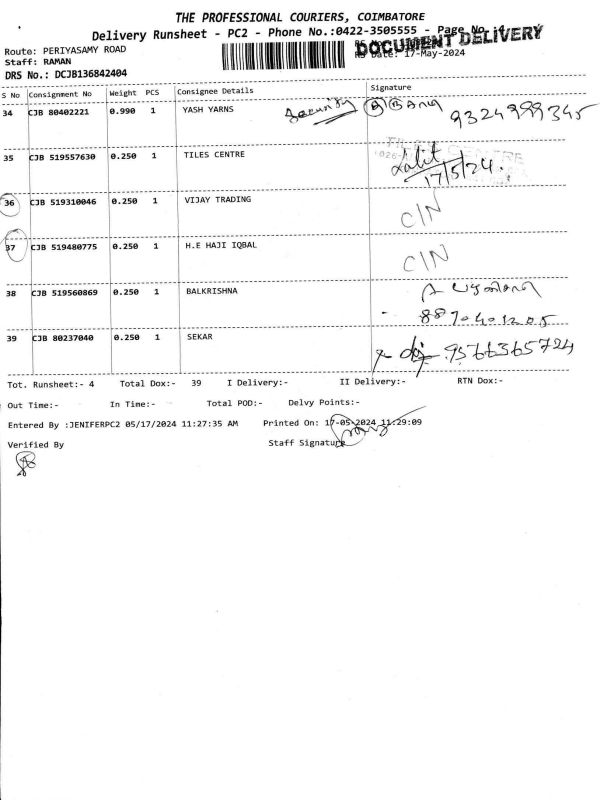 THE PROFESSIONAL COURIERS, COIMBATORE
Delivery Runsheet - PC2 - Phone No.:0422-3505555 - Page No.
DOCUMENT DELIVERY
Route: PERIYASAMY ROAD
Date: 17-May-2024
Staff: RAMAN
DRS No.: DCJB136842404
S No Consignment No Weight PCS Consignee Details Signature
34 CJB 80402221 0.990 1 YASH YARNS Security 9324999345
35 CJB 519557630 0.250 1 TILES CENTRE Lalit
17/5/24.
36 CJB 519310046 0.250 1 VIJAY TRADING C/N
37 CJB 519480775 0.250 1 H.E HAJI IQBAL C/N
38 CJB 519560869 0.250 1 BALKRISHNA
39 CJB 80237040 0.250 1 SEKAR 9566365724
Tot. Runsheet:- 4 Total Dox:- 39 I Delivery:- II Delivery:- RTN Dox:-
Out Time:- In Time:- Total POD:- Delvy Points:-
Entered By :JENIFERPC2 05/17/2024 11:27:35 AM Printed On: 17-05-2024 11:29:09
Verified By Staff Signature